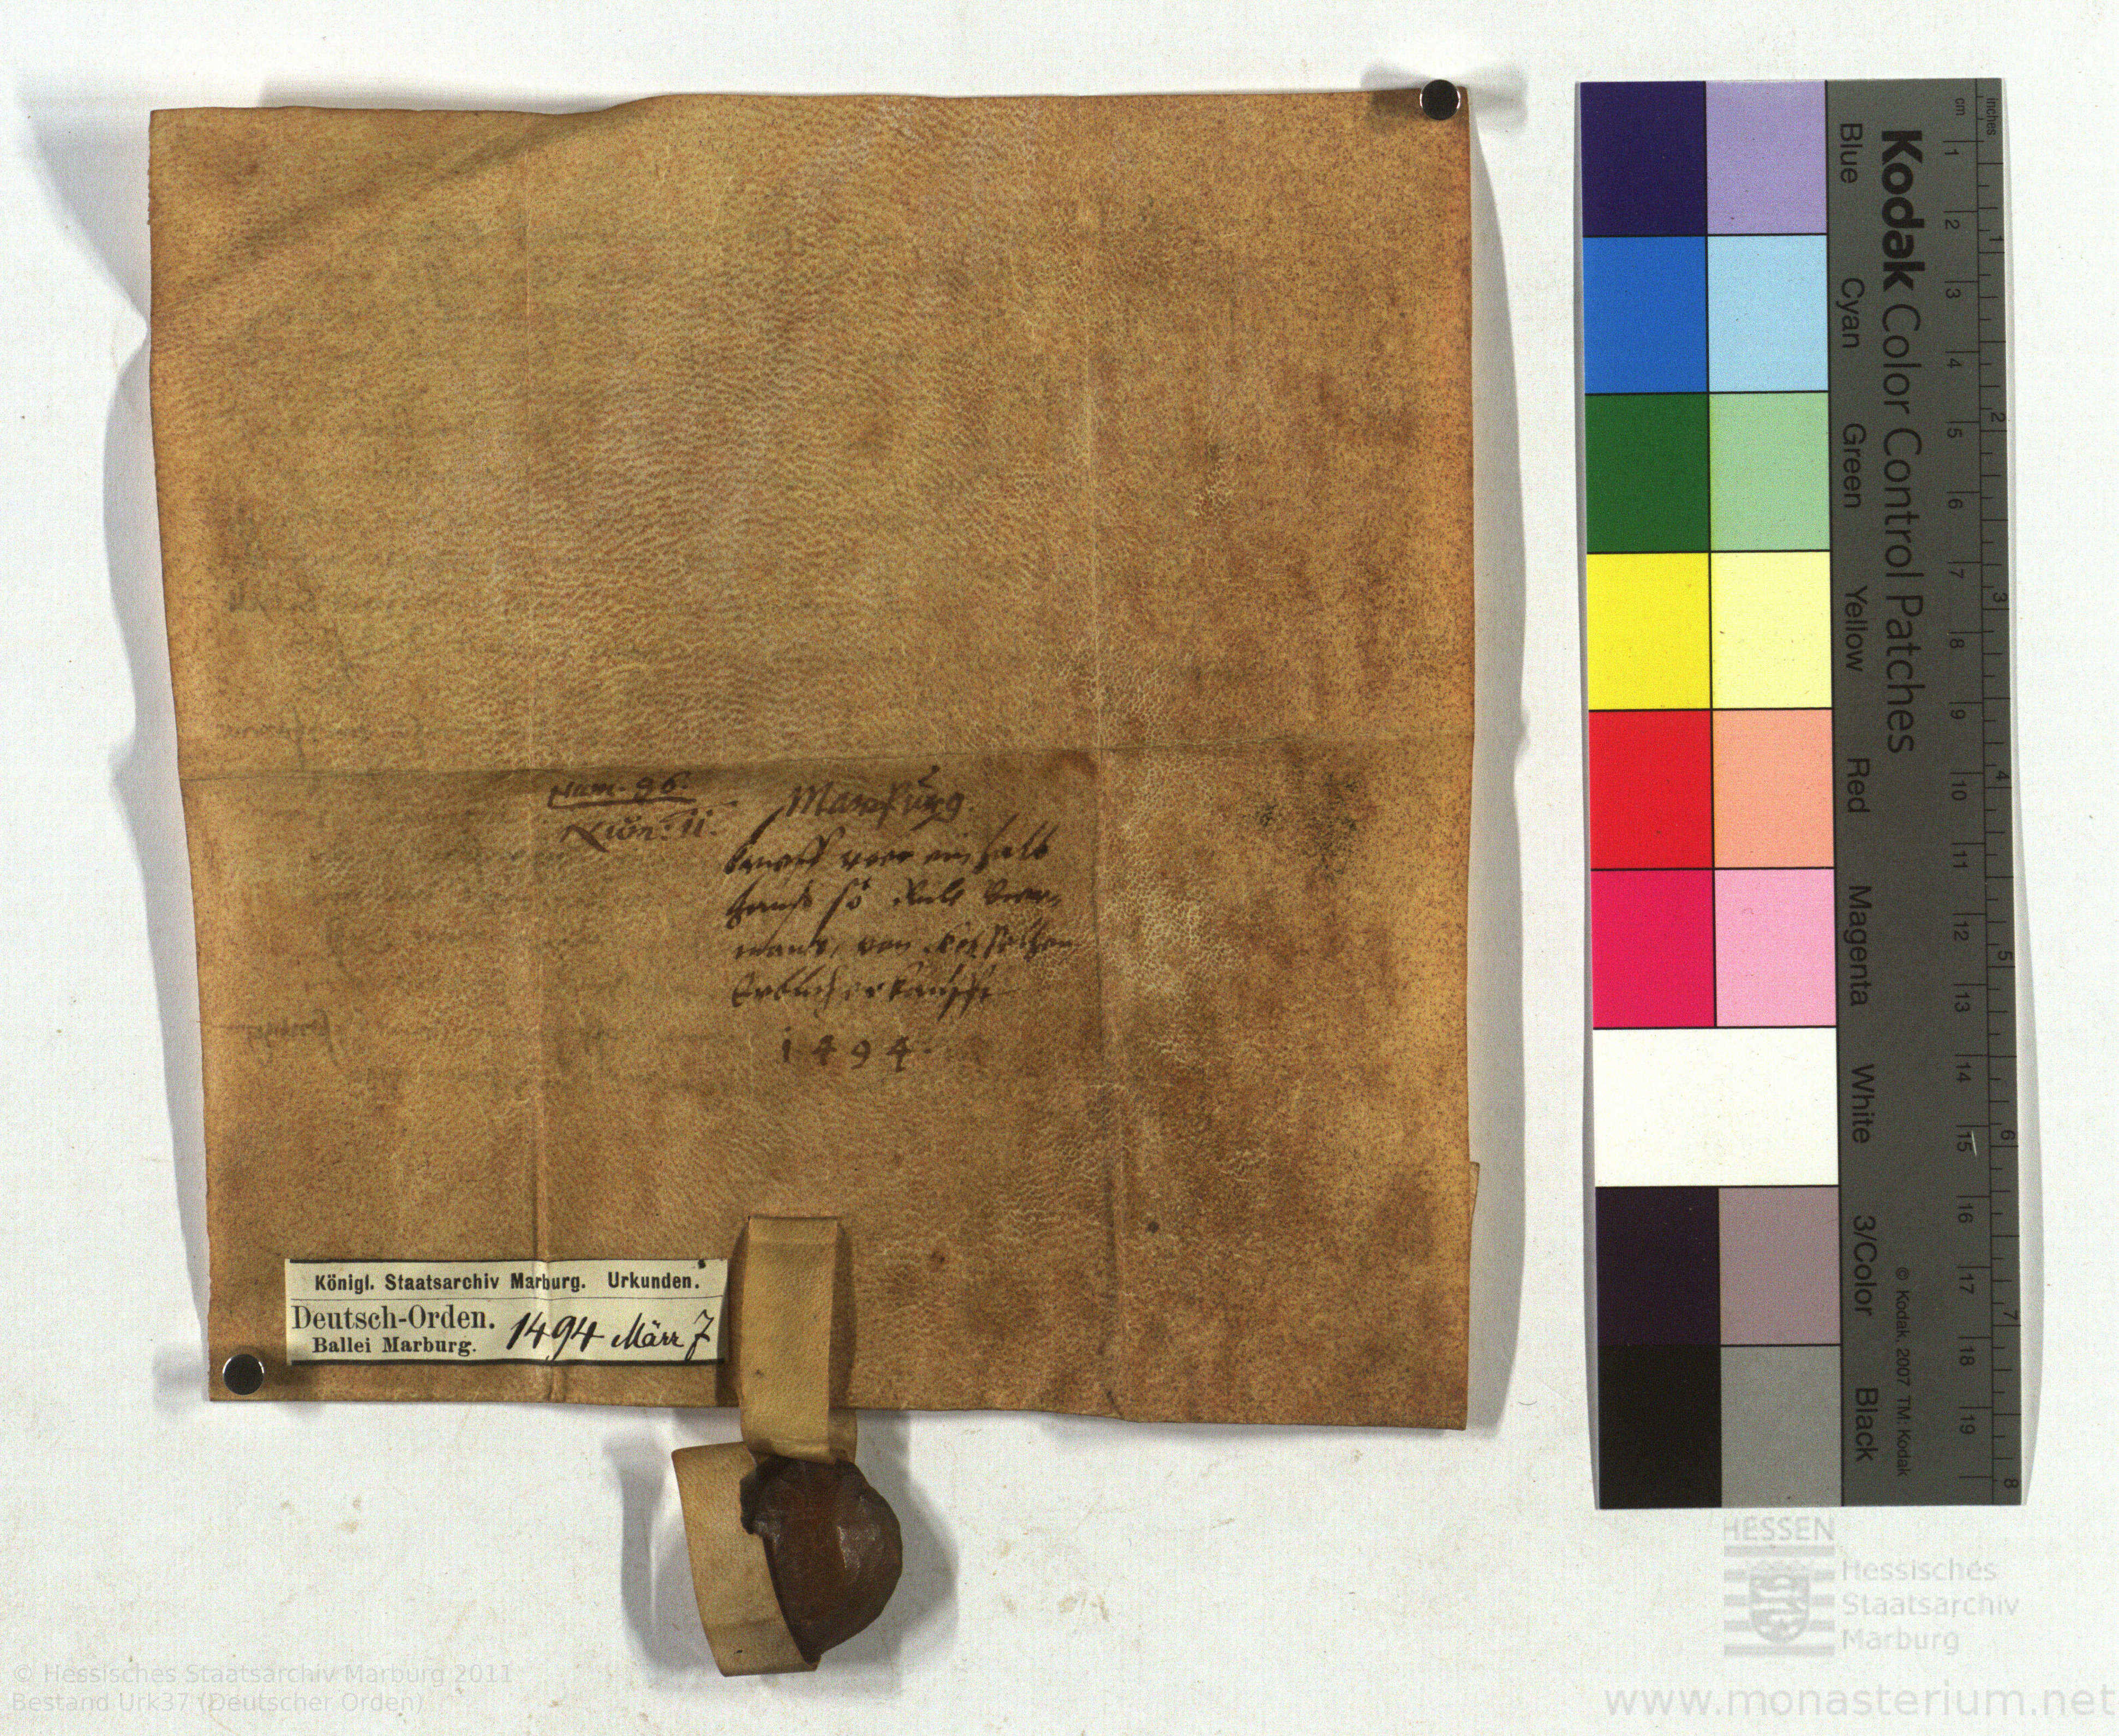 Num. 96.
Marpurg.
brieff uber ein halb
hauß so
von
Erblich erkaufft
1494.
Königl. Staatsarchiv Marburg. Urkunden.
Deutsch-Orden.
Ballei Marburg.
1494 März 7
Kodak Color Control Patches
Blue Cyan Green Yellow Red Magenta White 3/Color Black
© Kodak, 2007 TM: Kodak
cm 1 2 3 4 5 6 7 8 9 10 11 12 13 14 15 16 17 18 19
inches 1 2 3 4 5 6 7 8
HESSEN
Hessisches
Staatsarchiv
Marburg
© Hessisches Staatsarchiv Marburg 2011
Bestand Urk37 (Deutscher Orden)
www.monasterium.net